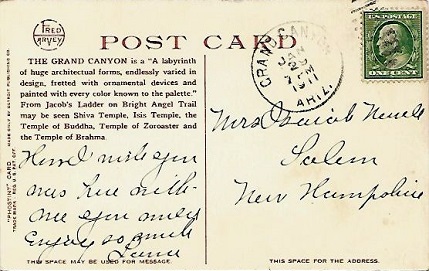 FRED
HARVEY
POST CARD
THE GRAND CANYON is a "A labyrinth
of huge architectural forms, endlessly varied in
design, fretted with ornamental devices and
painted with every color known to the palette."
From Jacob's Ladder on Bright Angel Trail
may be seen Shiva Temple, Isis Temple, the
Temple of Buddha, Temple of Zoroaster and
the Temple of Brahma.
"PHOSTINT" CARD
TRADE MARK REG. U.S. PAT. OFF.
MADE ONLY BY DETROIT PUBLISHING CO.
GRAND CANYON
JAN
7 PM
1911
ARIZ.
U.S. POSTAGE
ONE CENT
Mrs Jacob
Salem
New Hampshire
you
were here with
me you
Enjoy so much
THIS SPACE MAY BE USED FOR MESSAGE.
THIS SPACE FOR THE ADDRESS.